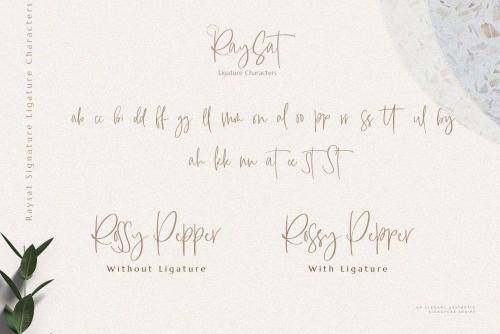 RaySat
Ligature Characters
Raysat Signature Ligature Characters
ab cc bi dd ff gg ll mm on al oo pp rr ss tt ul by
ah kk nn at ee st St
Rossy Pepper
Without Ligature
Rossy Pepper
With Ligature
AN ELEGANT AESTHETIC
SIGNATURE SCRIPT